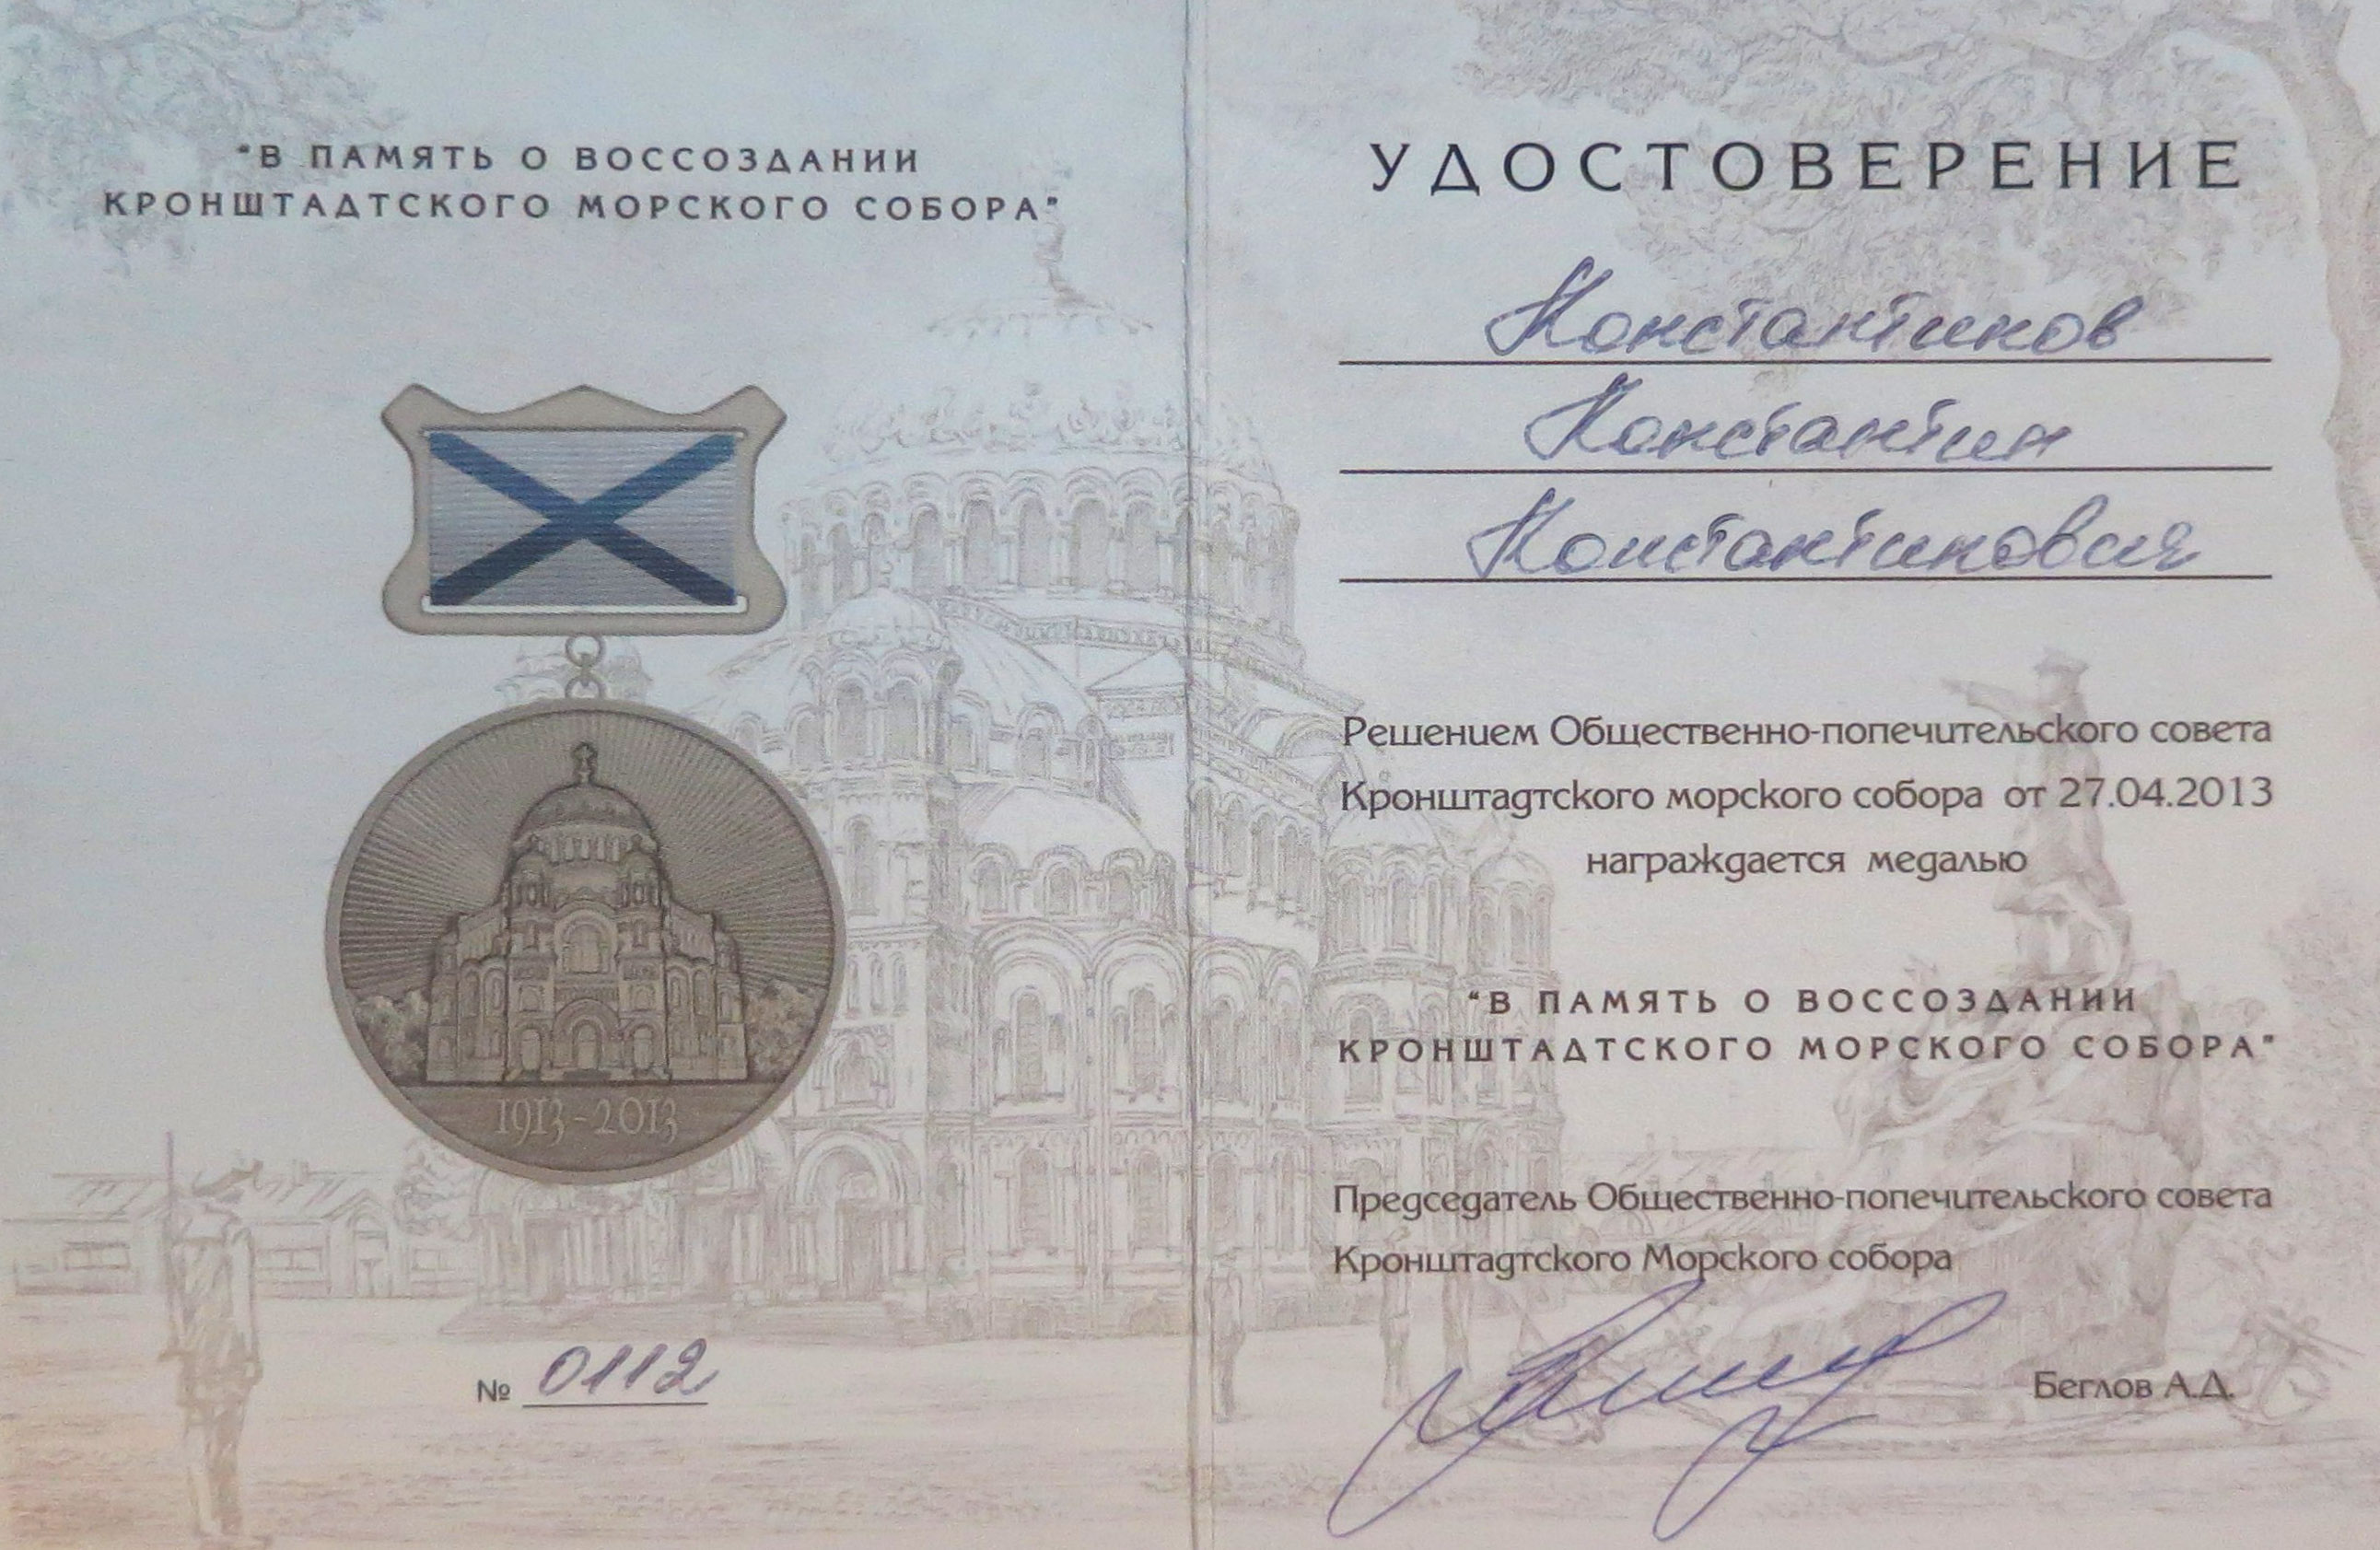 "В ПАМЯТЬ О ВОССОЗДАНИИ
КРОНШТАДТСКОГО МОРСКОГО СОБОРА"
1913-2013
№ 0112
УДОСТОВЕРЕНИЕ
Константинов
Константин
Константинович
Решением Общественно-попечительского совета
Кронштадтского морского собора от 27.04.2013
награждается медалью
"В ПАМЯТЬ О ВОССОЗДАНИИ
КРОНШТАДТСКОГО МОРСКОГО СОБОРА"
Председатель Общественно-попечительского совета
Кронштадтского Морского собора
Беглов А.Д.